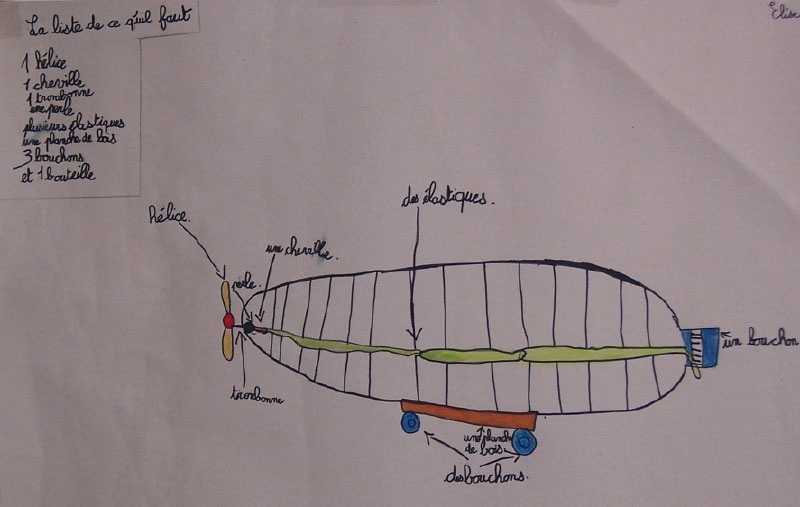 La liste de ce qu'il faut
Elise
1 hélice
1 cheville
1 trombonne
une perle
plusieurs élastiques
une planche de bois
3 bouchons
et 1 bouteille
des élastiques.
hélice.
une cheville.
perle.
un bouchon
trombonne
une planche
de bois
des bouchons.